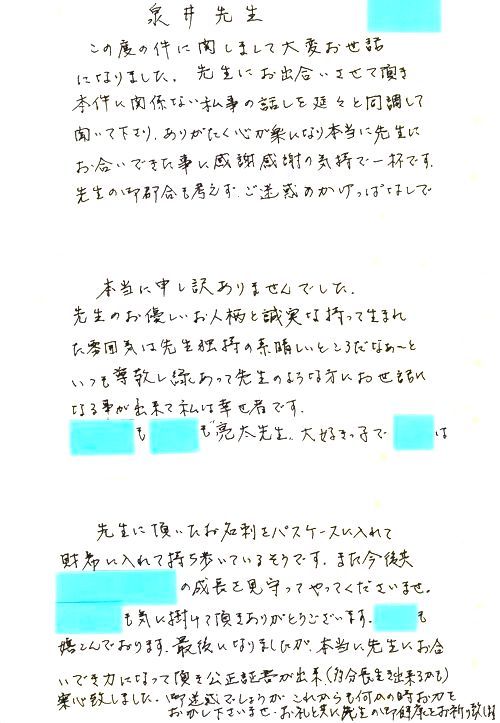 泉井先生
この度の件に関しまして大変お世話
になりました。先生にお出合いさせて頂き
本件に関係ない私事の話しを延々と同調して
聞いて下さり、ありがたく心が楽になり本当に先生に
お合いできた事に感謝感謝の気持で一杯です。
先生の御都合も考えず、ご迷惑のかけっぱなしで
本当に申し訳ありませんでした。
先生のお優しいお人柄と誠実な持って生まれ
た雰囲気は先生独特の素晴しいところだなぁ〜と
いつも尊敬し縁あって先生のような方にお世話に
なる事が出来て私は幸せ者です。
も も 亮太先生、大好きっ子で は
先生に頂いたお名刺をパスケースに入れて
財布に入れて持ち歩いているそうです。また今後共
の成長を見守ってやってくださいませ。
も気に掛けて頂きありがとうございます。 も
喜こんでおります。最後になりましたが、本当に先生にお合
いでき力になって頂き公正証書が出来、(多分長生き出来るかも)
安心致しました。御迷惑でしょうが、これからも何かの時お力を
おかし下さいませ。お礼と共に先生の御健康とお祈り致します